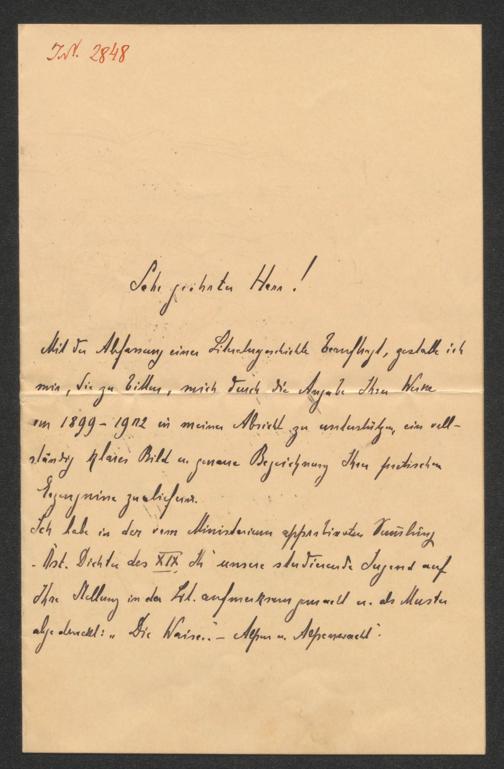 I.N. 2848
Sehr geehrter Herr!
Mit der Abfassung einer Literaturgeschichte beauftragt, gestatte ich
mir, Sie zu bitten, mich durch die Angabe Ihrer Werke
von 1899-1902 in meiner Absicht zu unterstützen, ein voll-
ständig klares Bild u. genaue Bezeichnung Ihrer poetischen
Erzeugnisse zu liefern.
Ich habe in der vom Ministerium approbierten Sammlung
"Öst. Dichter des XIX Jh" unsere studierende Jugend auf
Ihre Stellung in der Lit. aufmerksam gemacht u. als Muster
abgedruckt: "Die Waise." - Alpen u.